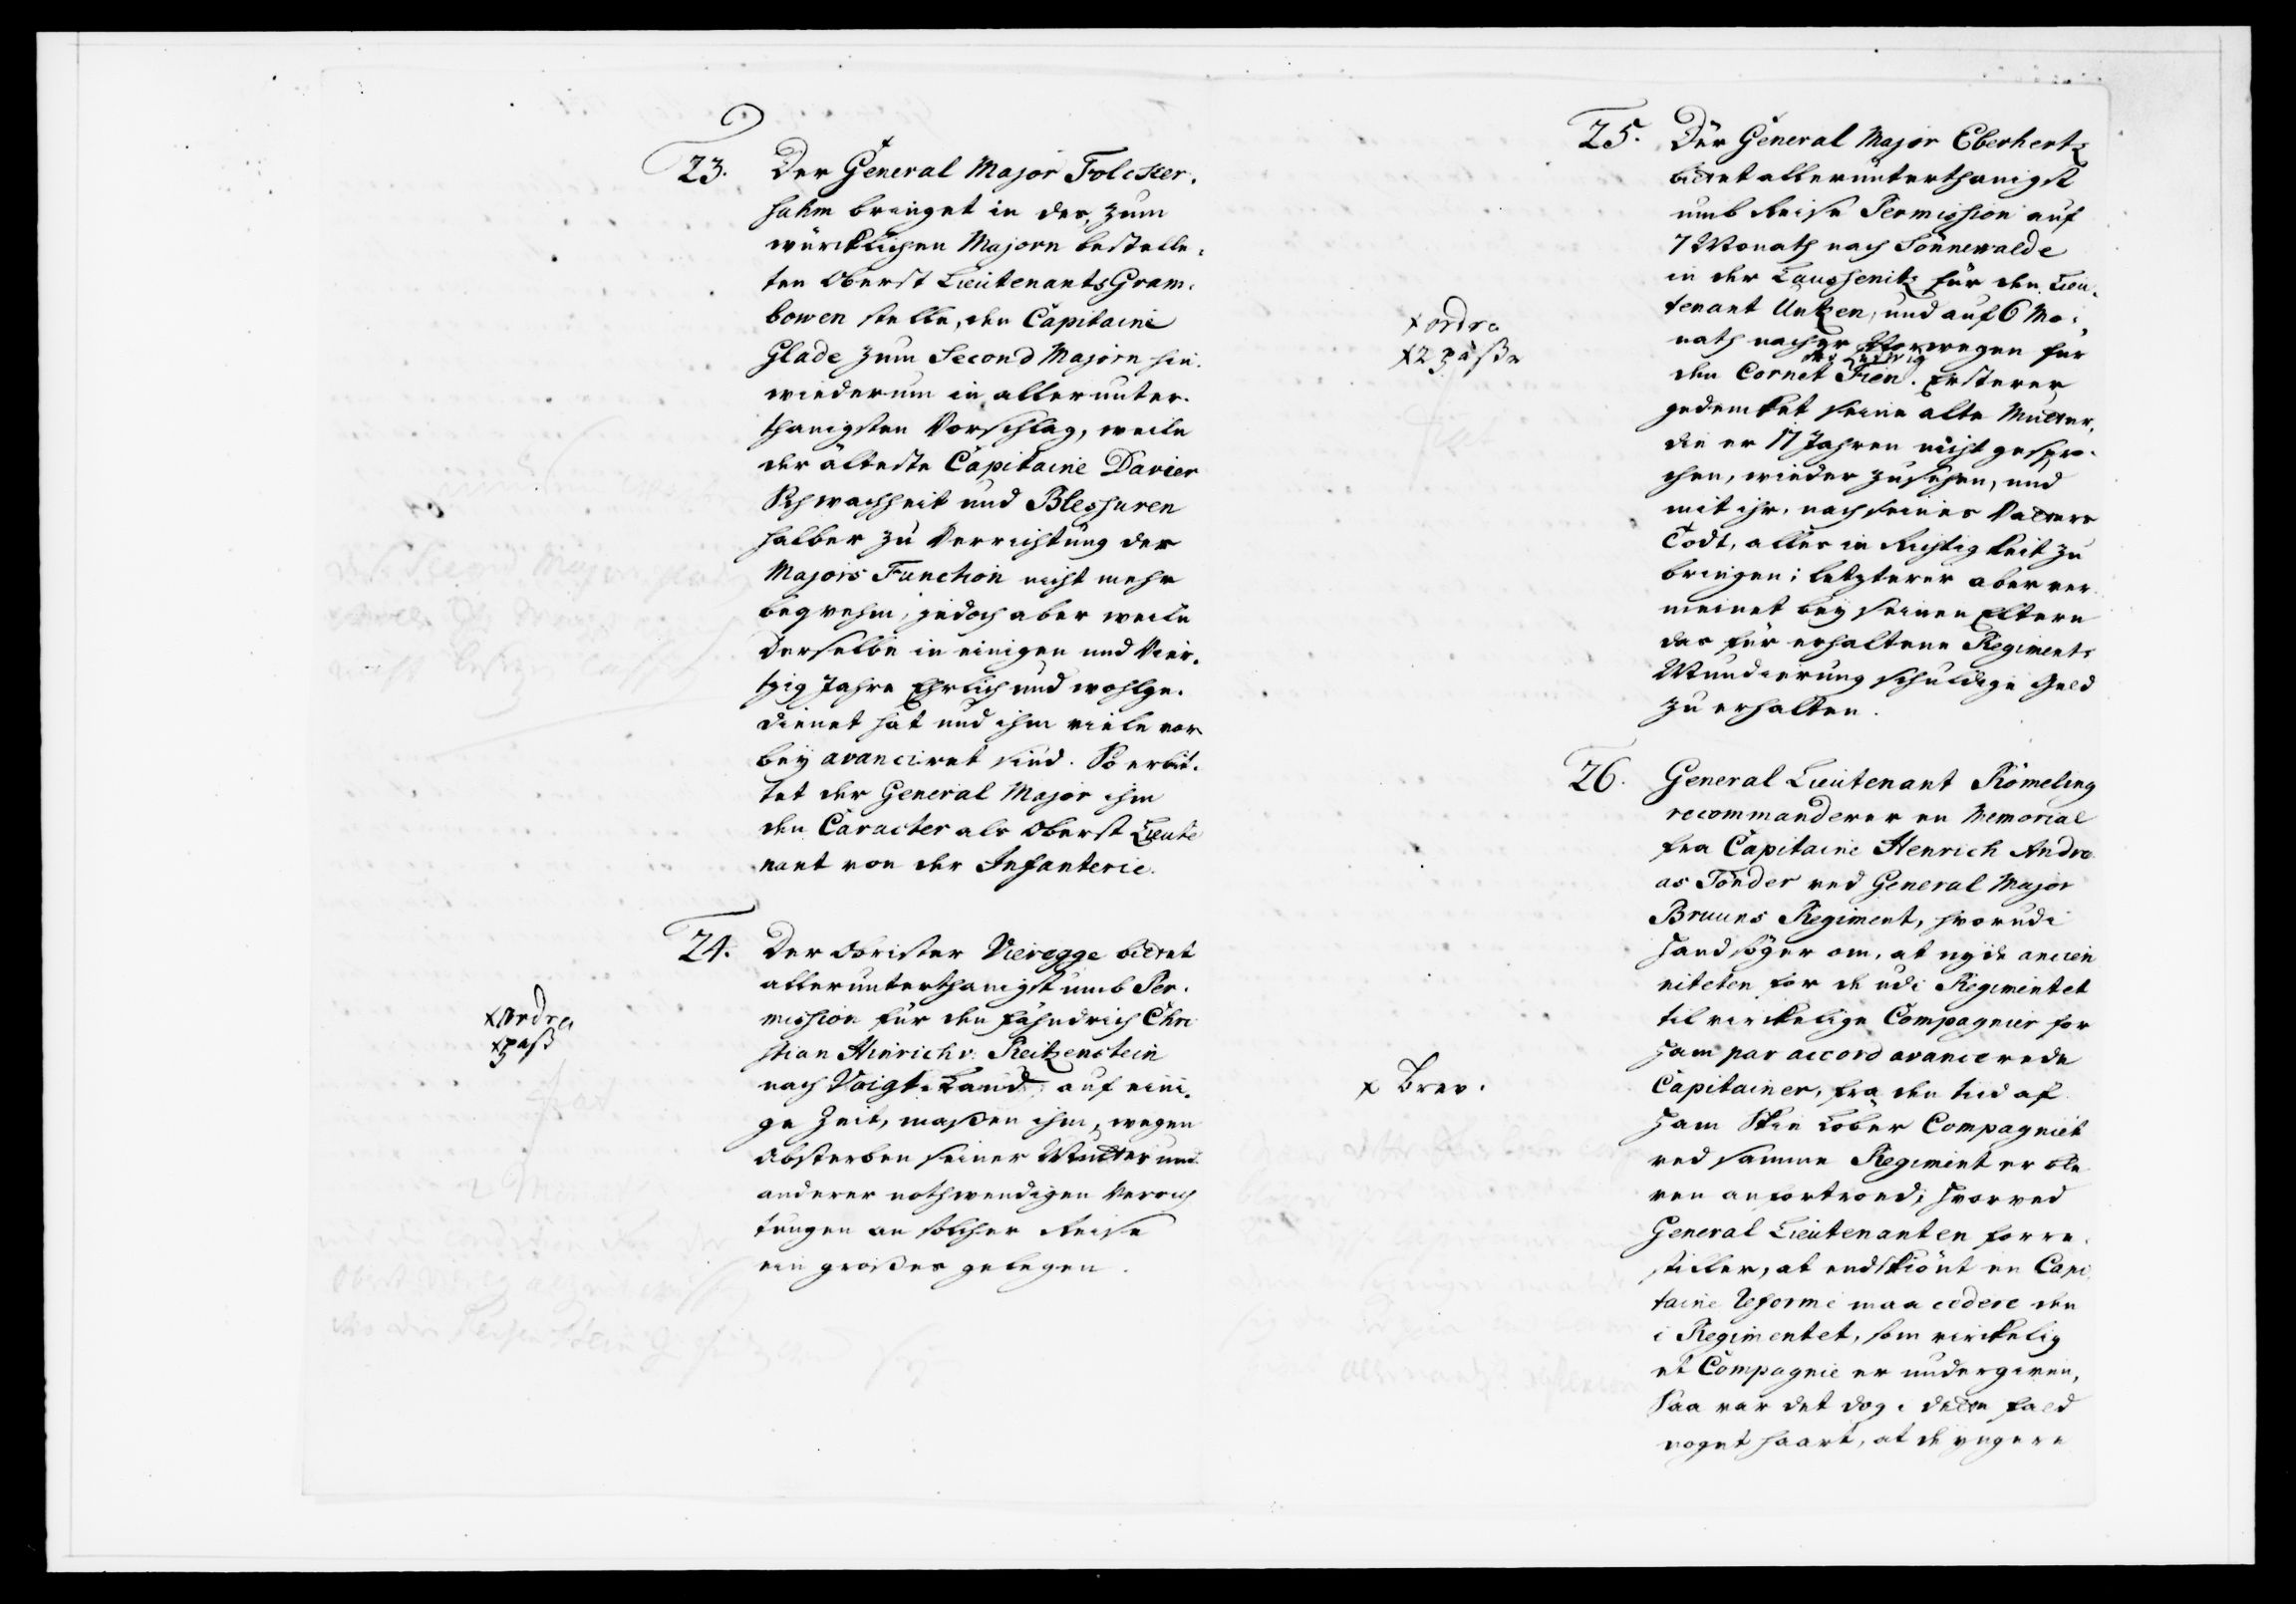 23. Der General Major Folcker,
sahm bringet in des, zum
würcklichen Majorn bestelle,
ten Oberst Lieutenants Gram,
bowen stelle, den Capitaine
Glade zum Second Majorn hin,
wiederum in allerunter,
thänigsten Vorschlag, weile
der älteste Capitaine Davier
Schwachheit und Blessuren
halber zu Verrichtung der
Majors Function nicht mehr
beqvehm, jedoch aber weile
derselbe in einigen und Vier,
tzig Jahre Ehrlich und wohlge,
dienet hat und ihm viele vor
bey avanciret sind. So erbit,
tet der General Major ihm
den Caracter als Oberst Lieute
nant von der Infanterie.
24. Der Obrister Vieregge bittet
allerunterthänigst umb Per,
mission für den Fähndrich Chri
stian Hinrich v. Reitzenstein
nach Voigt-Land, auf eini,
ge Zeit, maßen ihm, wegen
Absterben seiner Mutter und
anderer nothwendigen Verrich
tungen an solcher Reise
ein großes gelegen.
x ordre
x paß
25. Der General Major Eberhertz
bittet allerunterthänigst
umb Reise Permission auf
7 Monath nach Sonnewalde
in der Laussenitz für den Lieu,
tenant Untzen, und auf 6 Mo,
nath nacher Norwegen für
den Cornet Fien. Ersterer
gedencket seine alte Mutter,
die er 17 Jahren nicht gespro,
chen, wieder zusehen, und
mit ihr, nach seines Vatters
Todt, alles in Richtigkeit zu
bringen; letzterer aber ver
meinet bey seinen Eltern
das für erhaltene Regiments
Mundierung schuldige Geld
zu erhalten.
x ordre
x 2 päße
26. General Lieutenant Römeling
recommanderer en Memorial
fra Capitaine Henrich Andre
as Tönder ved General Major
Bruuns Regiment, hvorudi
hand søger om, at nyde ancien
niteten for de udi Regimentet
til virckelige Compagnier for
ham par accord avancerede
Capitainer, fra den tiid af
ham Skie Löber Compagniet
ved samme Regiment er ble
ven anfortroed; hvorved
General Lieutenanten forre,
stiller, at endskiönt en Capi
taine Reformé maa cedere den
i Regimentet, som virckelig
et Compagnie er undergiven,
Saa var det dog i dette fald
noget haart, at de yngere
x brev.